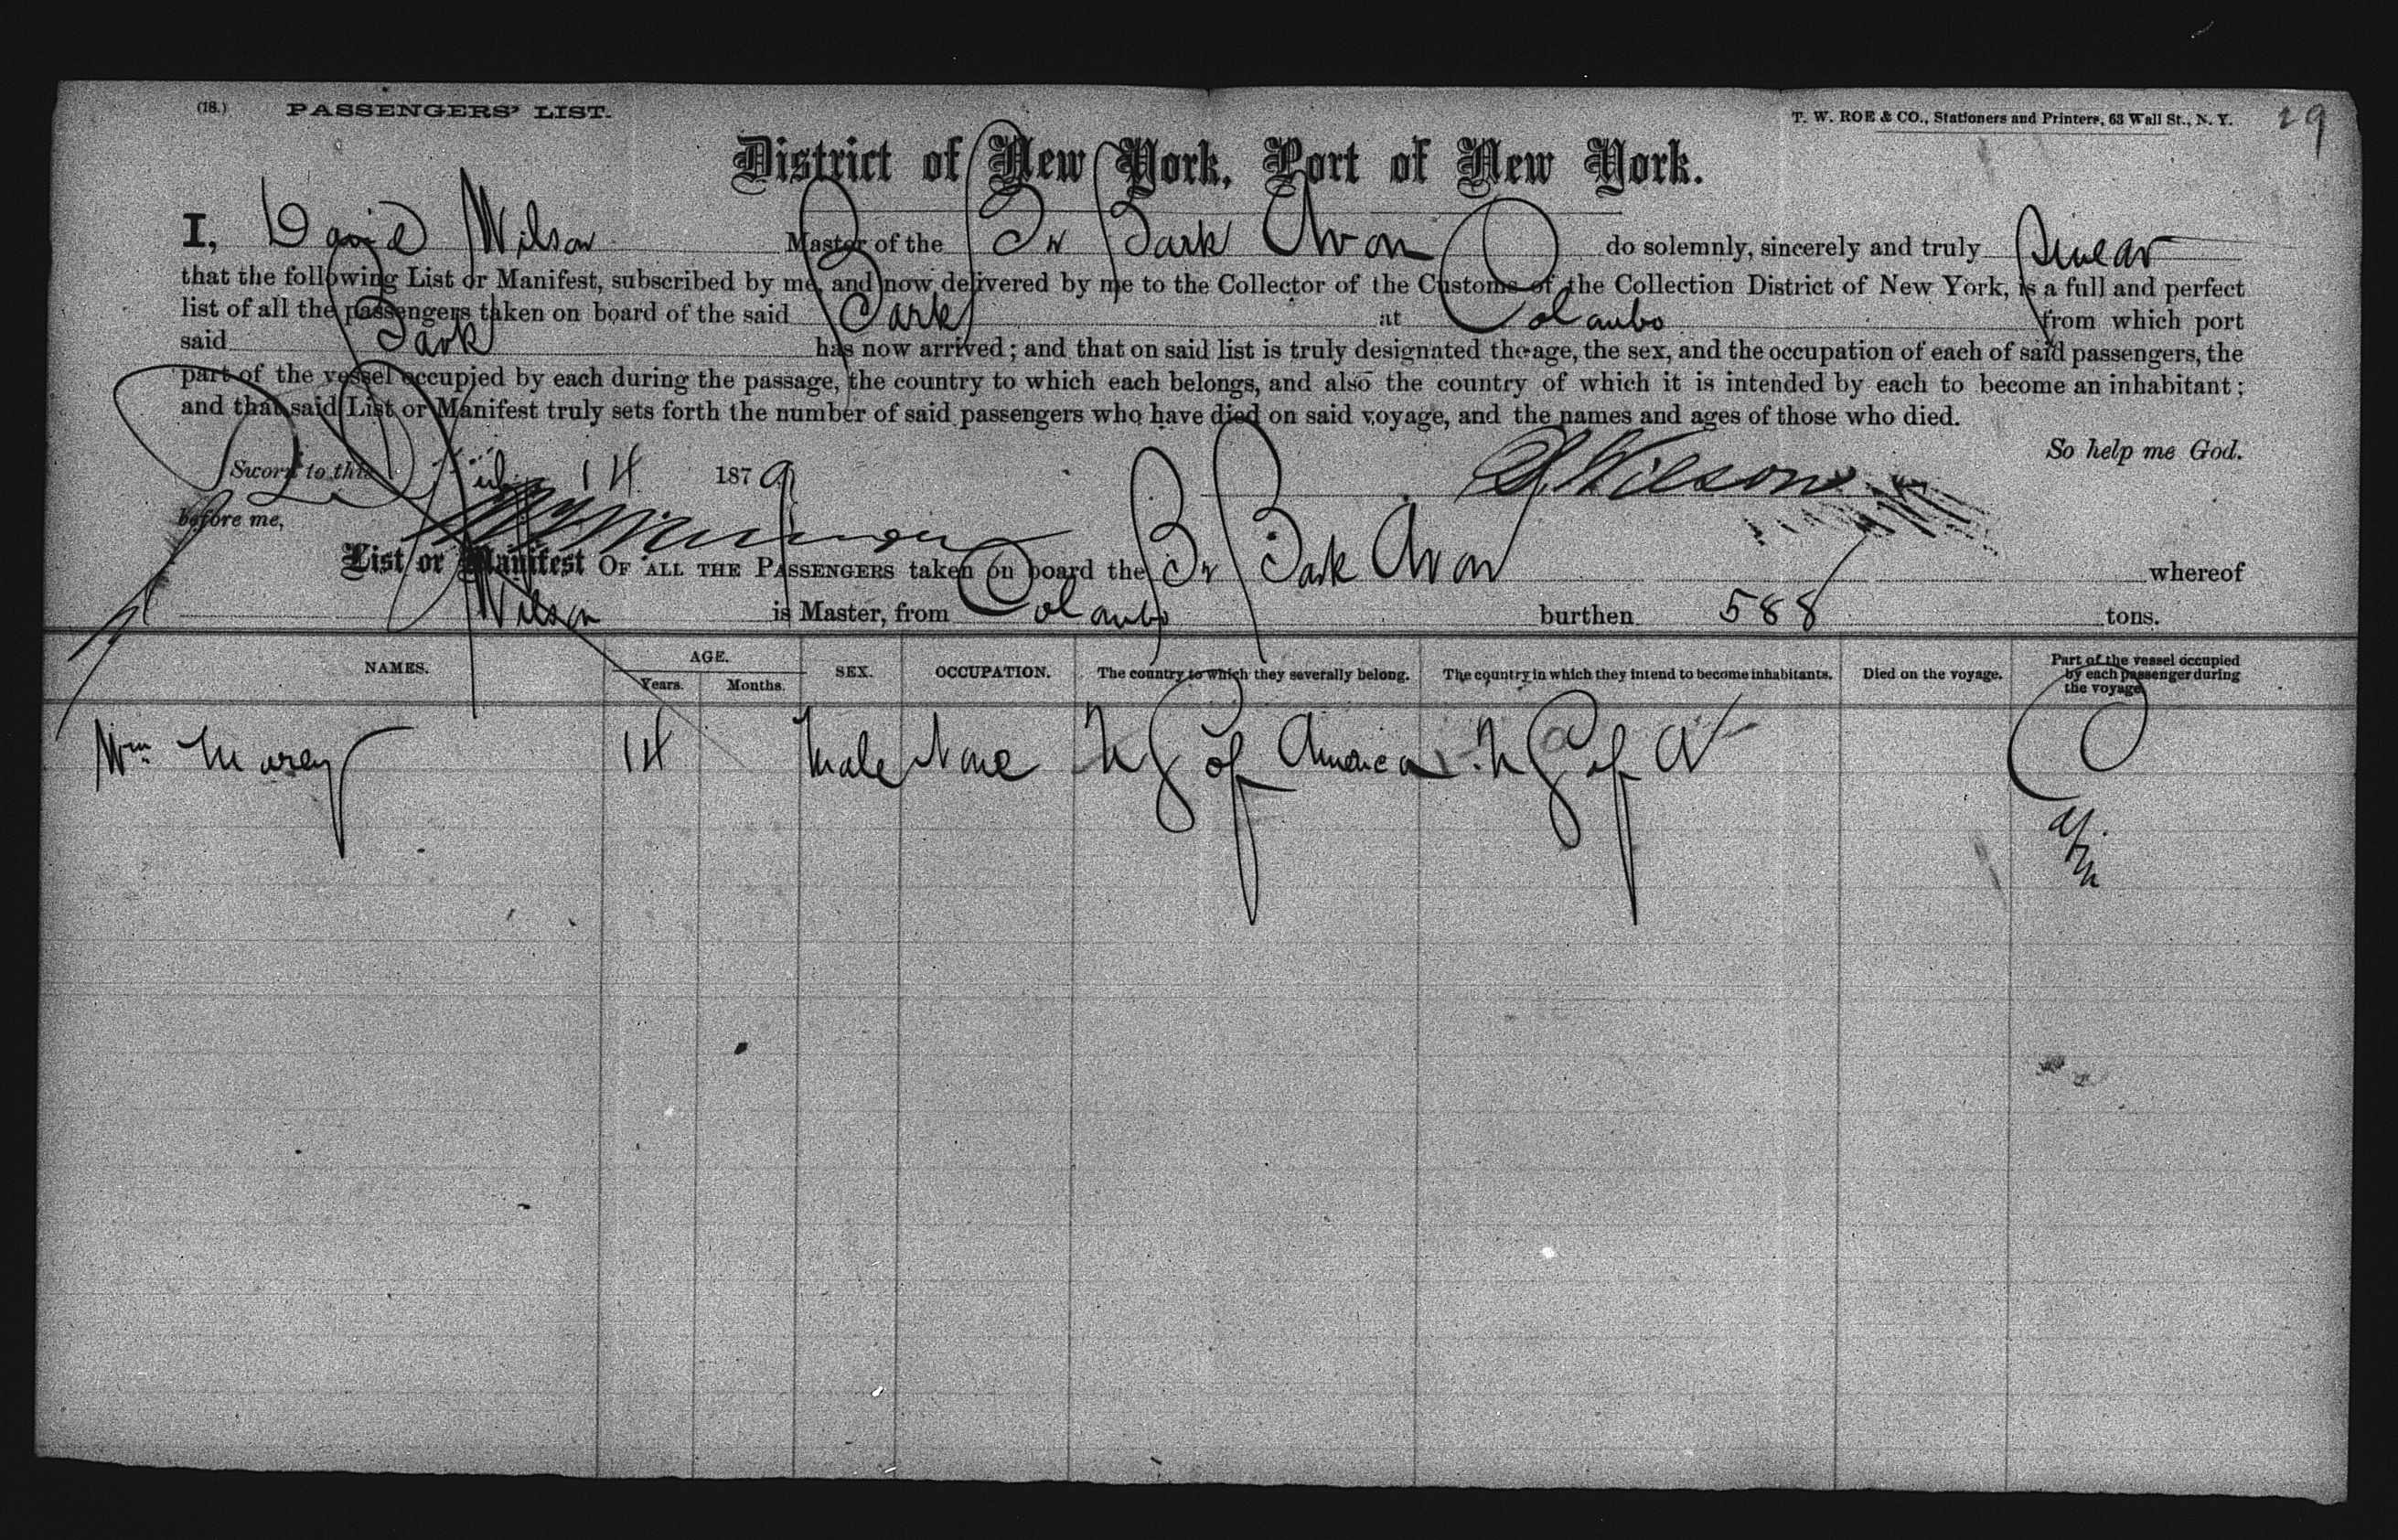 (18.) PASSENGERS' LIST. T. W. ROE & CO., Stationers and Printers, 63 Wall St., N. Y. 29
District of New York, Port of New York.
I, David Wilson Master of the Br Bark Avon do solemnly, sincerely and truly Swear
that the following List or Manifest, subscribed by me, and now delivered by me to the Collector of the Customs of the Collection District of New York, is a full and perfect
list of all the passengers taken on board of the said Bark at Colombo from which port
said Bark has now arrived; and that on said list is truly designated the age, the sex, and the occupation of each of said passengers, the
part of the vessel occupied by each during the passage, the country to which each belongs, and also the country of which it is intended by each to become an inhabitant;
and that said List or Manifest truly sets forth the number of said passengers who have died on said voyage, and the names and ages of those who died.
So help me God.
Sworn to this July 14 1879 D Wilson
before me,
List or Manifest OF ALL THE PASSENGERS taken on board the Br Bark Avon whereof
Wilson is Master, from Colombo burthen 588 tons.
NAMES. AGE. Years. Months. SEX. OCCUPATION. The country to which they severally belong. The country in which they intend to become inhabitants. Died on the voyage. Part of the vessel occupied by each passenger during the voyage
Wm 14 Male None U S of America U S of A